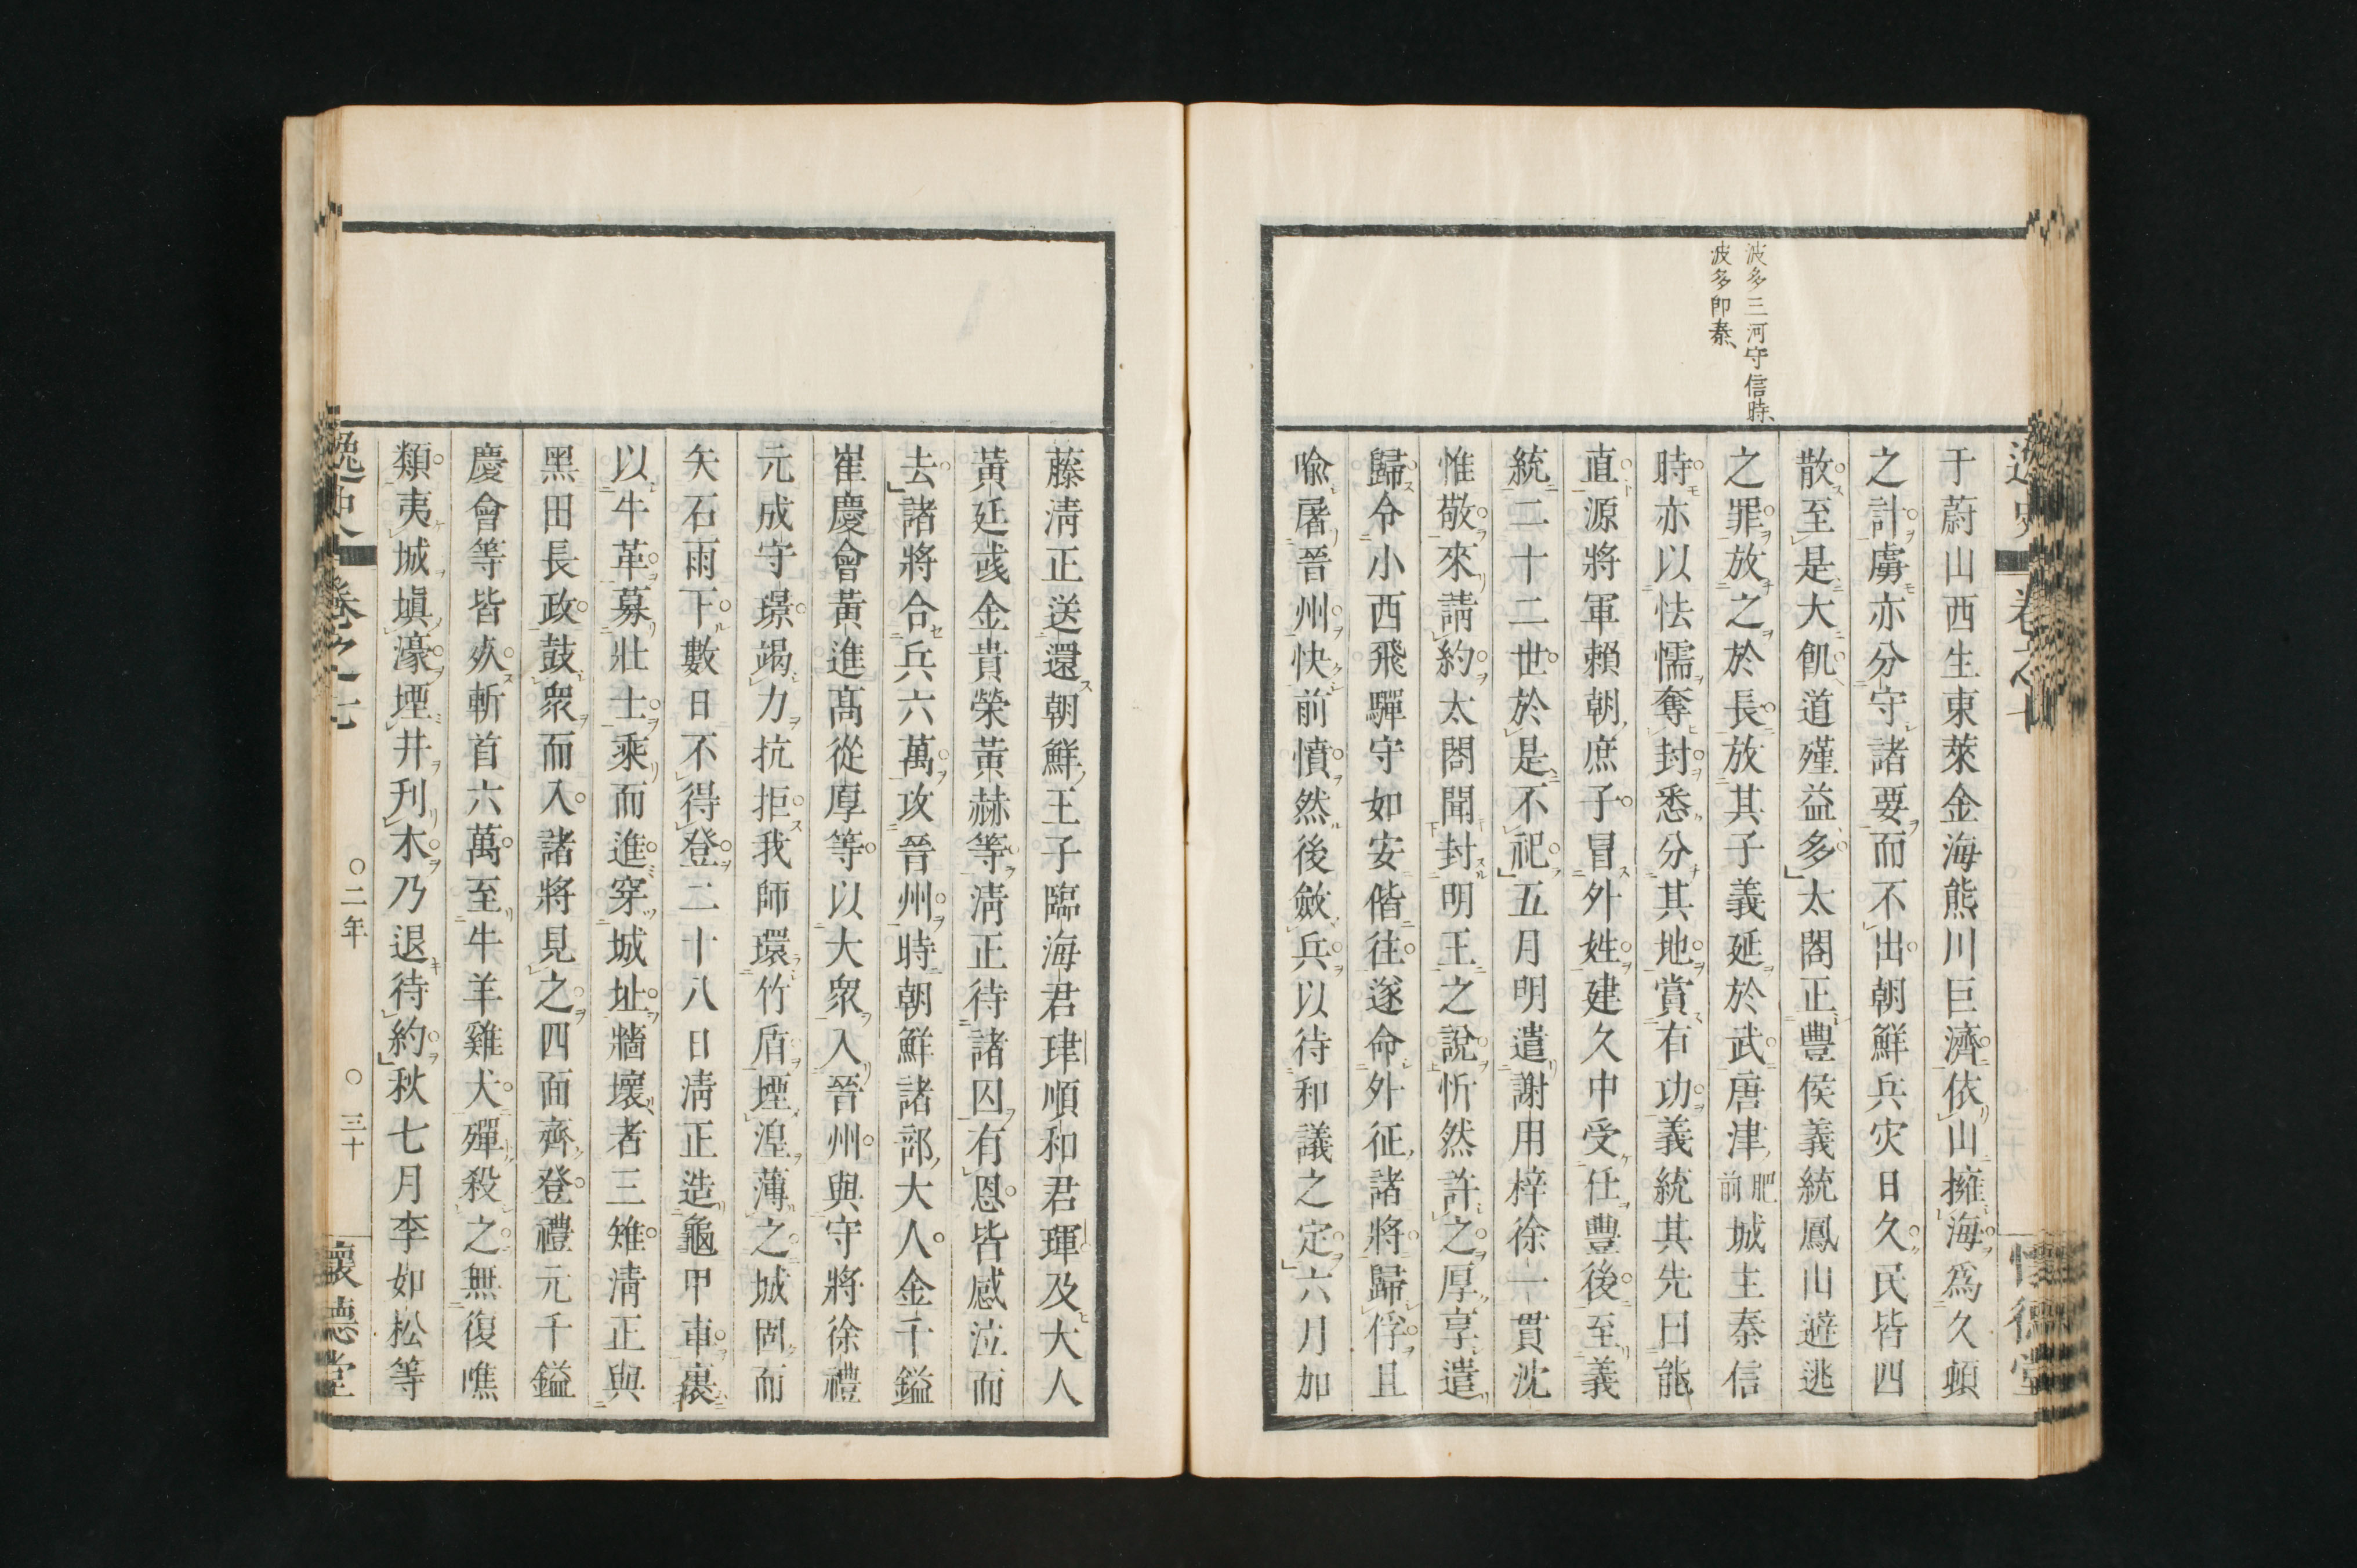 波多三河守信時、
波多卽秦、
于蔚山西生東萊金海熊川巨濟依山擁海爲久頓
之計虜亦分守諸要而不出朝鮮兵灾日久民皆四
散至是大飢道殣益多太閤正豐侯義統鳳山遁逃
之罪放之於長放其子義延於武唐津肥前城主秦信
時亦以怯懦奪封悉分其地賞有功義統其先曰能
直源將軍賴朝庶子冒外姓建久中受仕豐後至義
統二十二世於是不祀五月明遣謝用梓徐一貫沈
惟敬來請約太閤聞封明王之說忻然許之厚享遣
歸令小西飛驒守如安偕往遂命外征諸將歸俘且
喩屠晉州快前憤然後斂兵以待和議之定六月加
藤淸正送還朝鮮王子臨海君珒順和君㻅及大人
黃廷彧金貴榮黃赫等淸正待諸囚有恩皆感泣而
去諸將合兵六萬攻晉州時朝鮮諸部大人金千鎰
崔慶會黃進髙從厚等以大衆入晉州與守將徐禮
元成守璟竭力抗拒我師環竹盾堙湟薄之城固而
矢石雨下數日不得登二十八日淸正造龜甲車裹
以牛革募壯士乘而進穿城址墻壞者三雉淸正與
黑田長政鼓衆而入諸將見之四面齊登禮元千鎰
慶會等皆㱙斬首六萬至牛羊雞犬殫殺之無復噍
類夷城塡濠堙井刋木乃退待約秋七月李如松等
逸史 卷之七 〇二年 〇三十 懷德堂